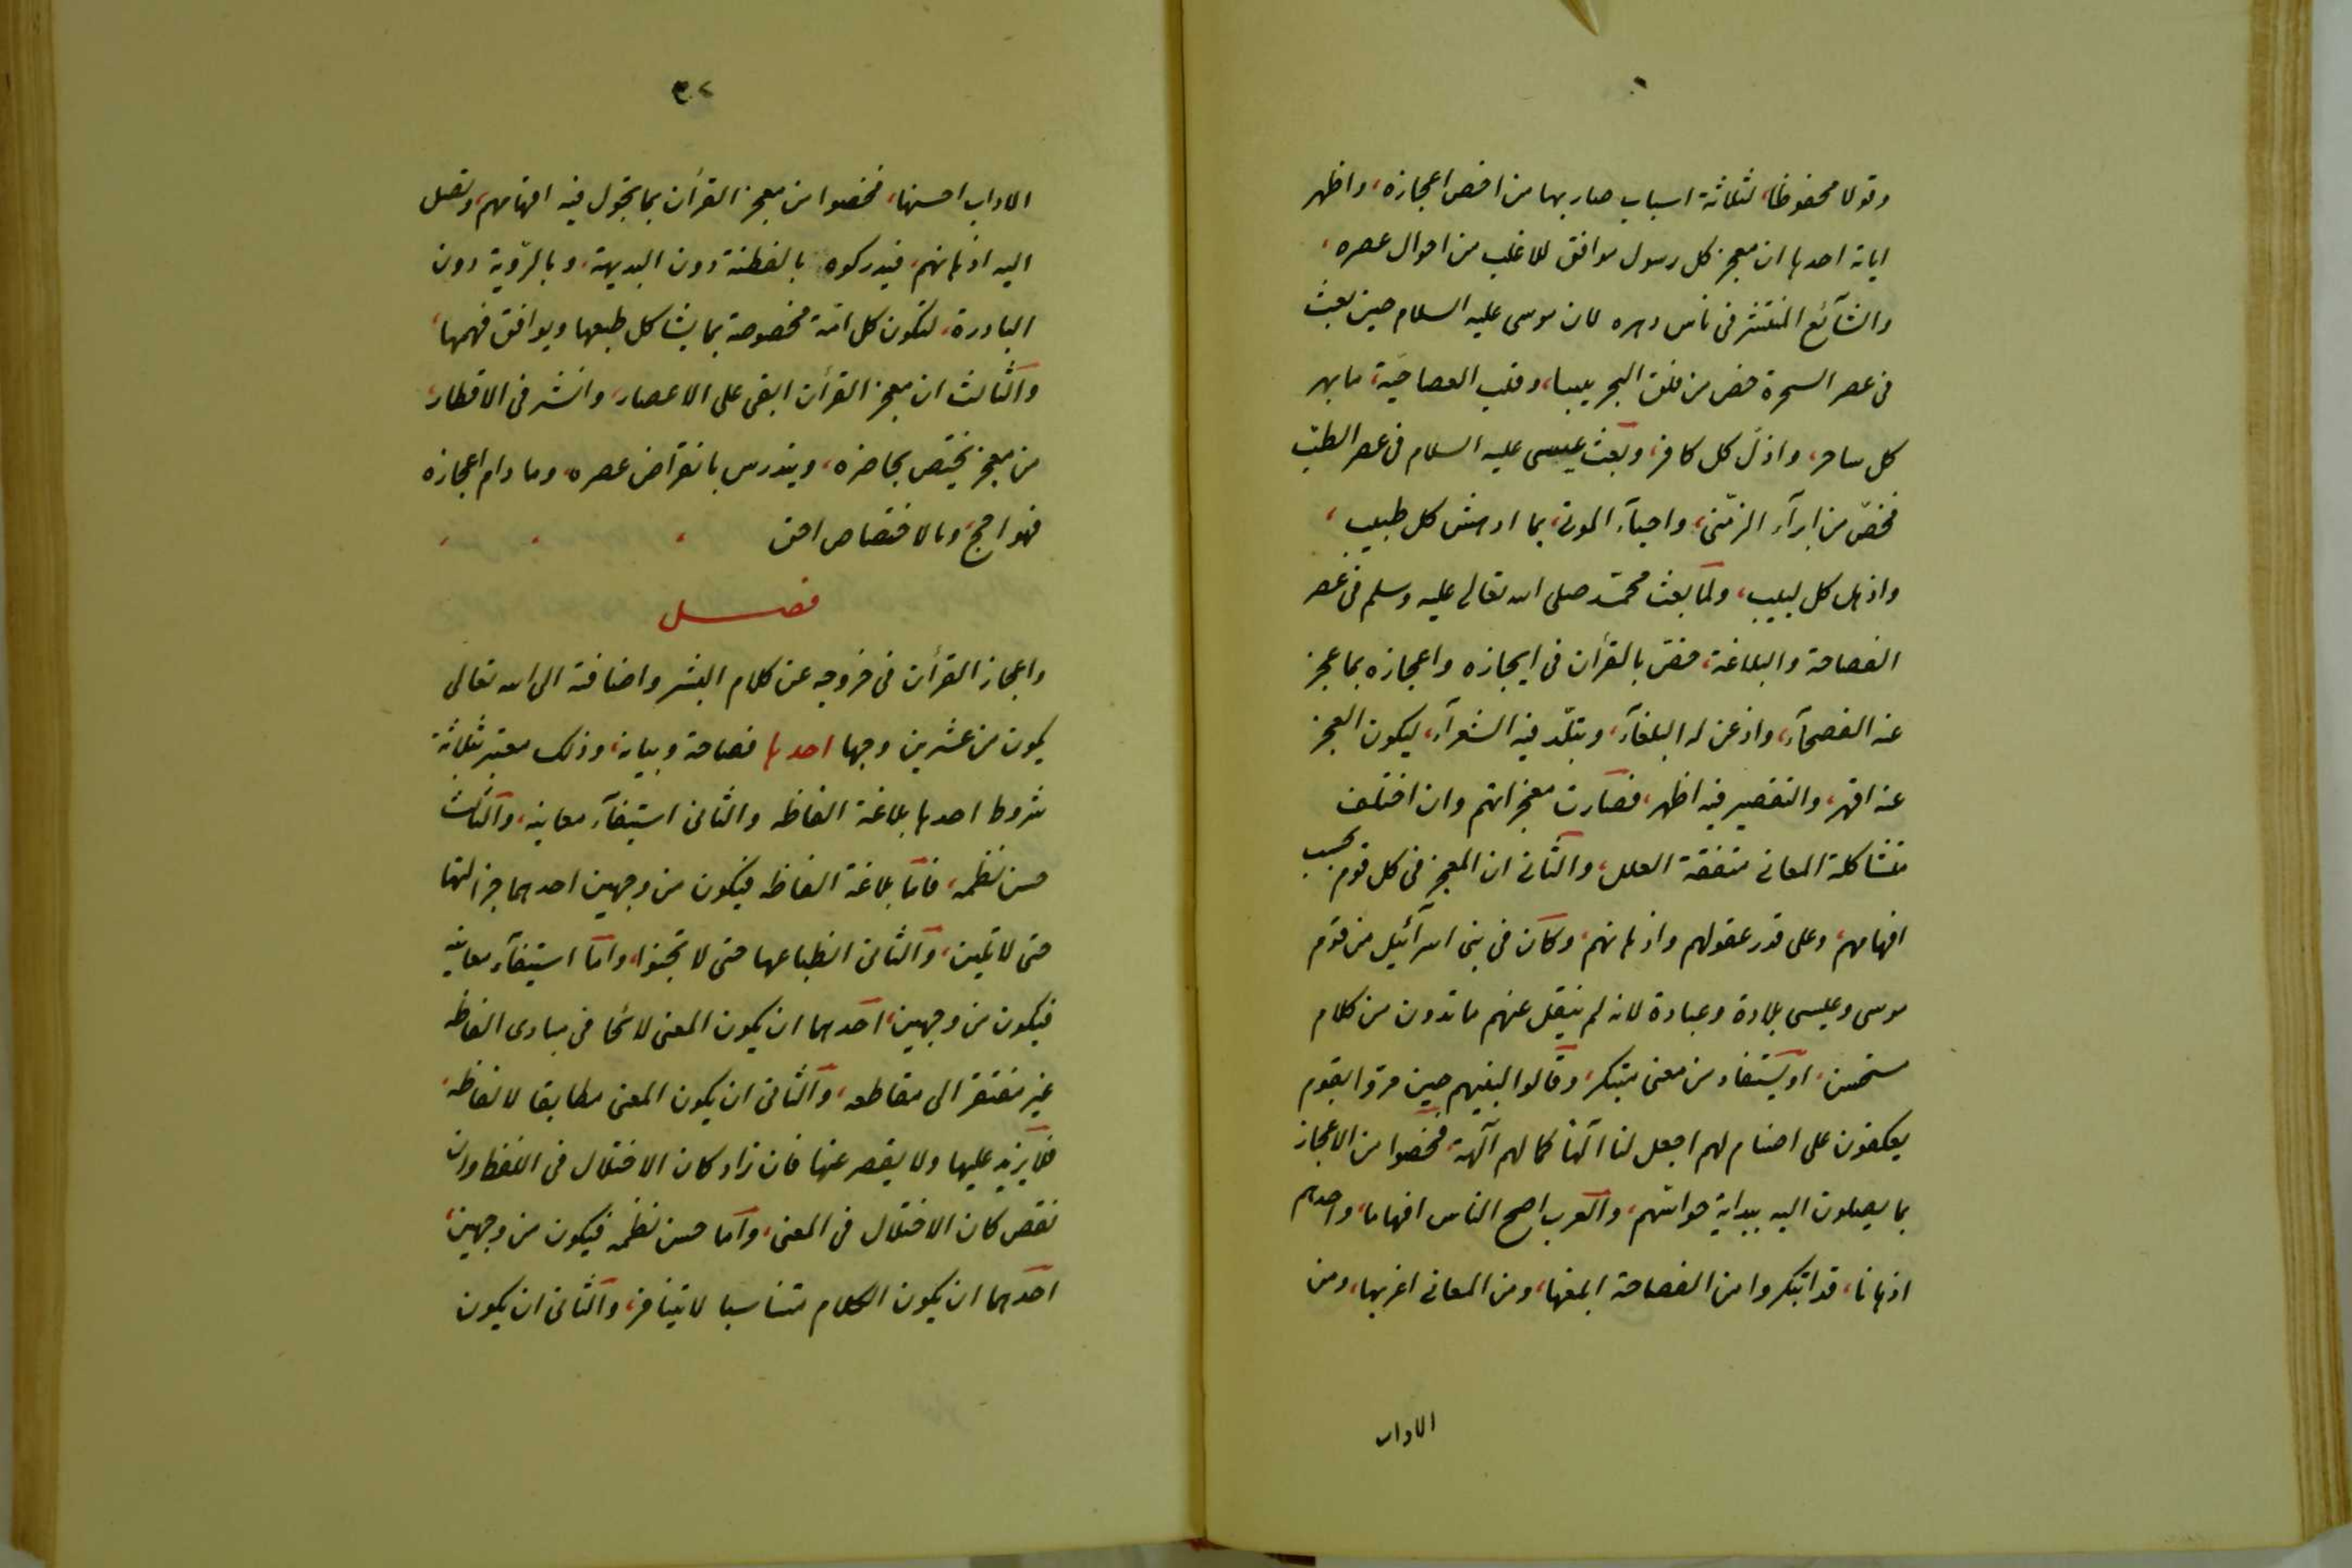 وقولا محفوظا، لثلاثة اسباب صار بها من اخص اعجازه، واظهر
اياته احدها ان معجز كل رسول موافق للاغلب من احوال عصره،
والشآئع المنتشر فى ناس دهره لان موسى عليه السلام حين بعث
فى عصر السحرة خص من فلق البحر يبسا، وقلب العصا حية، ما بهر
كل ساحر، واذل كل كافر، وبعث عيسى عليه السلام فى عصر الطبّ
فخصّ من ابرآء الزمنى، واحيآء الموتى، بما ادهش كل طبيب،
واذهل كل لبيب، ولما بعث محمّد صلى الله تعالى عليه وسلم فى عصر
الفصاحة والبلاغة، خصّ بالقرأن فى ايجازه واعجازه بما عجز
عنه الفصحآء، واذعن له البلغآء، وتبلّد فيه الشعرآء، ليكون العجز
عنه اقهر، والتقصير فيه اظهر، فصارت معجزاتهم وان اختلفت
متشاكلة المعانى متفقة العلل، والثانى ان المعجز فى كل قوم بحسب
افهامهم، وعلى قدر عقولهم واذهانهم، وكان فى بنى اسرآئيل من قوم
موسى وعيسى بلادة وعبادة لانه لم ينقل عنهم ما تدون من كلام
مستحسن، او يستفاد من معنى مبتكر، وقالوا لنبيهم حين مروا بقوم
يعكفون على اصنام لهم اجعل لنا الٓهًا كما لهم آلهة، فخصوا من الاعجاز
بما يصلون اليه ببداية حواسّهم، والعرب اصح الناس افهاما، واحدهم
اذهانا، قد ابتكروا من الفصاحة ابلغها، ومن المعانى اغربها، ومن
الاداب
٣٠٢
الاداب احسنها، فخصوا من معجز القرأن بما تجول فيه افهامهم، وتصل
اليه اذهانهم، فيدركوه بالفطنة دون البديهة، وبالرّوية دون
البادرة، لتكون كل امّة مخصوصة بما يشاكل طبعها ويوافق فهمها،
والثالث ان معجز القرأن ابقى على الاعصار، وانشر فى الاقطار،
من معجز يختص بحاضره، ويندرس بانقراض عصره، وما دام اعجازه
فهو احجّ، وبالاختصاص احق
فصل
واعجاز القرأن فى خروجه عن كلام البشر واضافته الى الله تعالى
يكون من عشرين وجها احدها فصاحة وبيانه، وذلك معتبر بثلاثة
شروط احدها بلاغة الفاظه والثانى استيفآء معانيه، والثالث
حسن نظمه، فامّا بلاغة الفاظه فيكون من وجهين احدهما جزالتها
حتى لا تلين، والثانى انطباعها حتى لا تجنوا، وامّا استيفآء معانيه
فيكون من وجهين، احدهما ان يكون المعنى لائحا فى مبادى الفاظه
غير مفتقر الى مقاطعه، والثانى ان يكون المعنى مطابقا لالفاظه،
فلا يزيد عليها ولا يقصر عنها فان زاد كان الاختلال فى اللفظ وان
نقص كان الاختلال فى المعنى، واما حسن نظمه فيكون من وجهين،
احدهما ان يكون الكلام متناسبا لا يتنافر، والثانى ان يكون